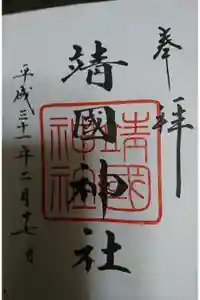 奉拝
靖國神社
平成三十一年二月十七日
靖國
神社